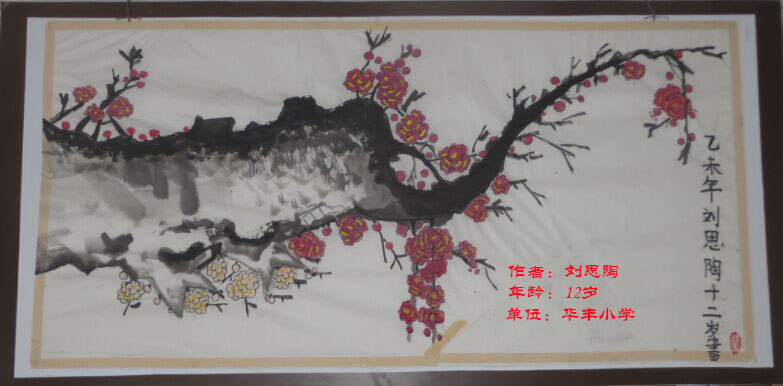 乙未年刘思陶十二岁画
作者：刘思陶
年龄：12岁
单位：华丰小学